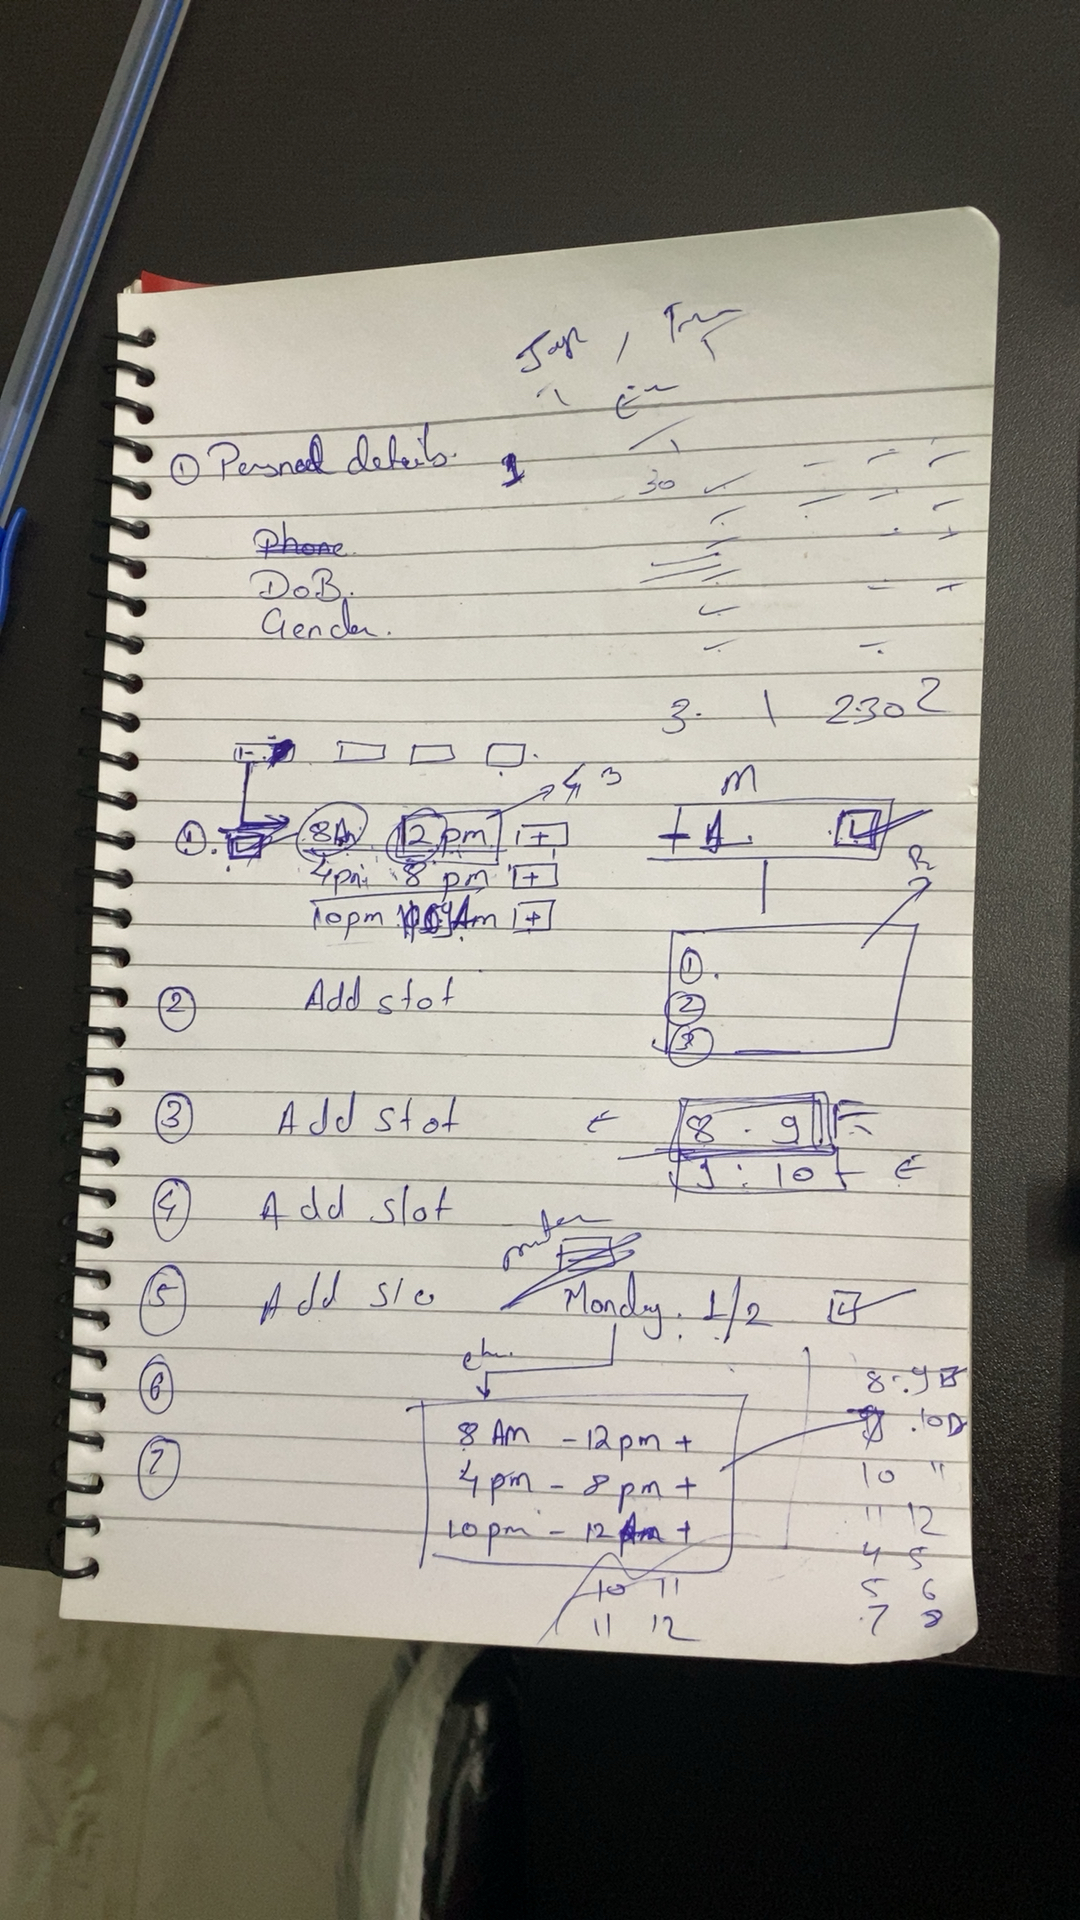 ① Personal details. 1
30
Phone
DoB.
Gender.
3. 1 230 2
M
①. 8Am 12 pm +
4pm 8 pm +
10pm Am +
R
② Add slot
①.
②
③
③ Add slot 8 . 9
9 : 10
④ Add slot
⑤ Add slo Monday. 1/2
⑥
⑦
8 AM - 12pm +
4pm - 8pm +
10pm - 12Am +
10 11
11 12
8 . 9
. 10
10 "
11 12
4 5
5 6
7 8